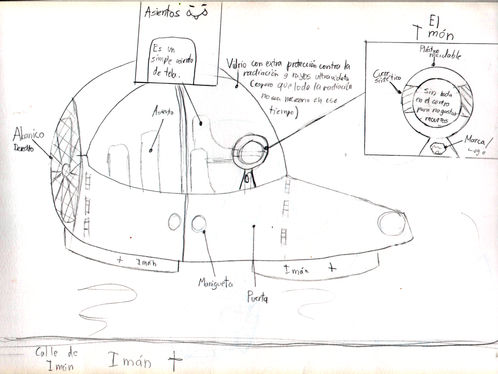 Asientos
Es un
simple asiento
de tela.
Vidrio con extra protección contra la
radiación y rayos ultravioleta
(espero que toda la radiación
no sea necesaria en ese
tiempo)
El
Timón
Plástico
reciclable
Cuero
sintético
Sin bola
en el centro
para no gastar
recursos
Marca/
Logo
Asiento
Abanico
Derecho
+ Imán
Manigueta
Puerta
Imán +
Calle de
Imán
Imán +